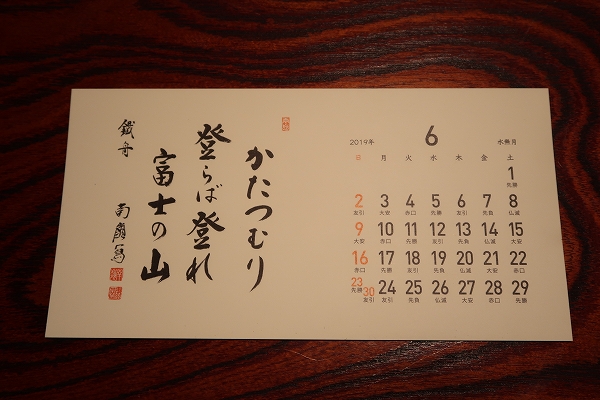 かたつむり
登らば登れ
富士の山
鐵舟
2019年 6 水無月
日 月 火 水 木 金 土
1
先勝
2 3 4 5 6 7 8
友引 大安 赤口 先勝 友引 先負 仏滅
9 10 11 12 13 14 15
大安 赤口 先勝 友引 先負 仏滅 大安
16 17 18 19 20 21 22
赤口 先勝 友引 先負 仏滅 大安 赤口
23 30 24 25 26 27 28 29
先勝 友引 友引 先負 仏滅 大安 赤口 先勝